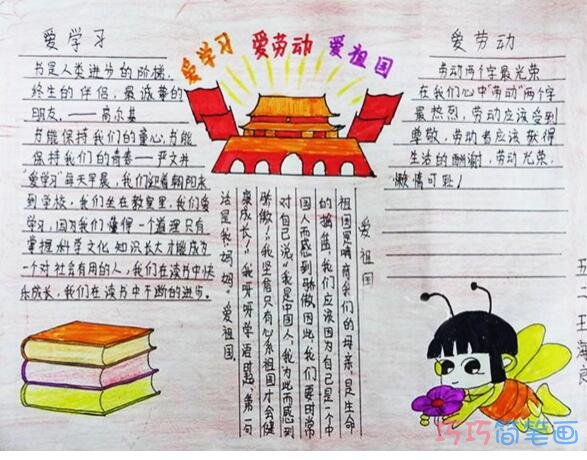 爱学习 爱劳动 爱祖国
爱学习
书是人类进步的阶梯,
终生的伴侣,最诚挚的
朋友。——高尔基
书能保持我们的童心;书能
保持我们的青春——严文井
"爱学习"每天早晨,我们迎着朝阳来
到学校,我们坐在教室里,我们爱
学习,因为我们懂得一个道理只有
掌握科学文化知识长大才能成为
一个对社会有用的人,我们在读书中快
乐成长,我们在读书中不断的进步。
爱祖国
祖国是哺育我们的母亲,是生命
的摇篮,我们应该因为自己是一个中
国人而感到骄傲因此,我们要时常
对自己说"我是中国人,我为此而感到
骄傲!"我坚信只有心系祖国才会健
康成长!"我呀呀学语起,第一句
话是我"妈妈"爱祖国。
爱劳动
劳动两个字最光荣
在我们心中"劳动"两个字
最热烈,劳动应该受到
尊敬,劳动者应该获得
生活的酬谢,劳动光荣,
懒惰可耻!
巧巧简笔画